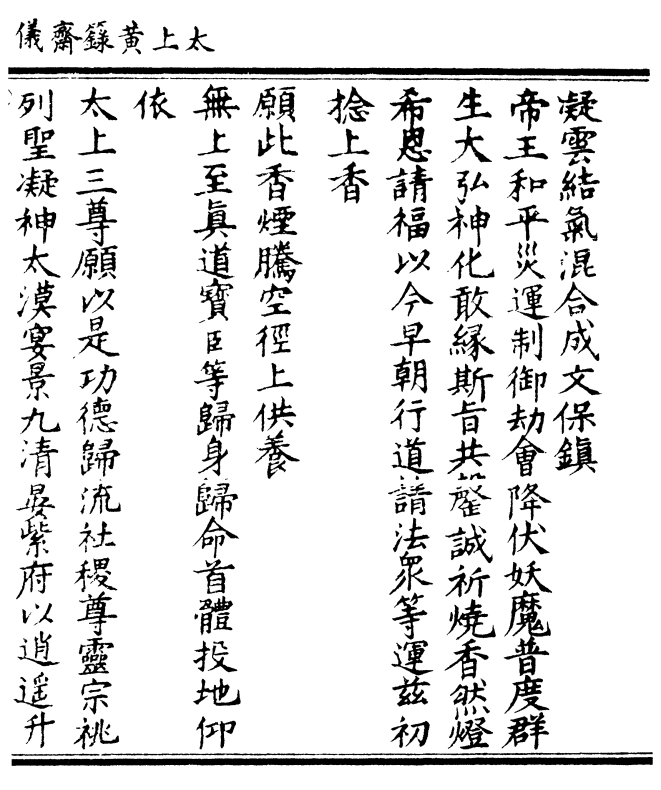 太上黃籙齋儀
凝雲結氣混合成文保鎮
帝王和平災運制御劫會降伏妖魔普度群
生大弘神化敢緣斯旨共罄誠祈燒香然燈
希恩請福以今早朝行道請法眾等運茲初
捻上香
願此香煙騰空徑上供養
無上至眞道寶臣等歸身歸命首體投地仰
依
太上三尊願以是功德歸流社稷尊靈宗祧
列聖凝神太漠宴景九清晏紫府以逍遥升